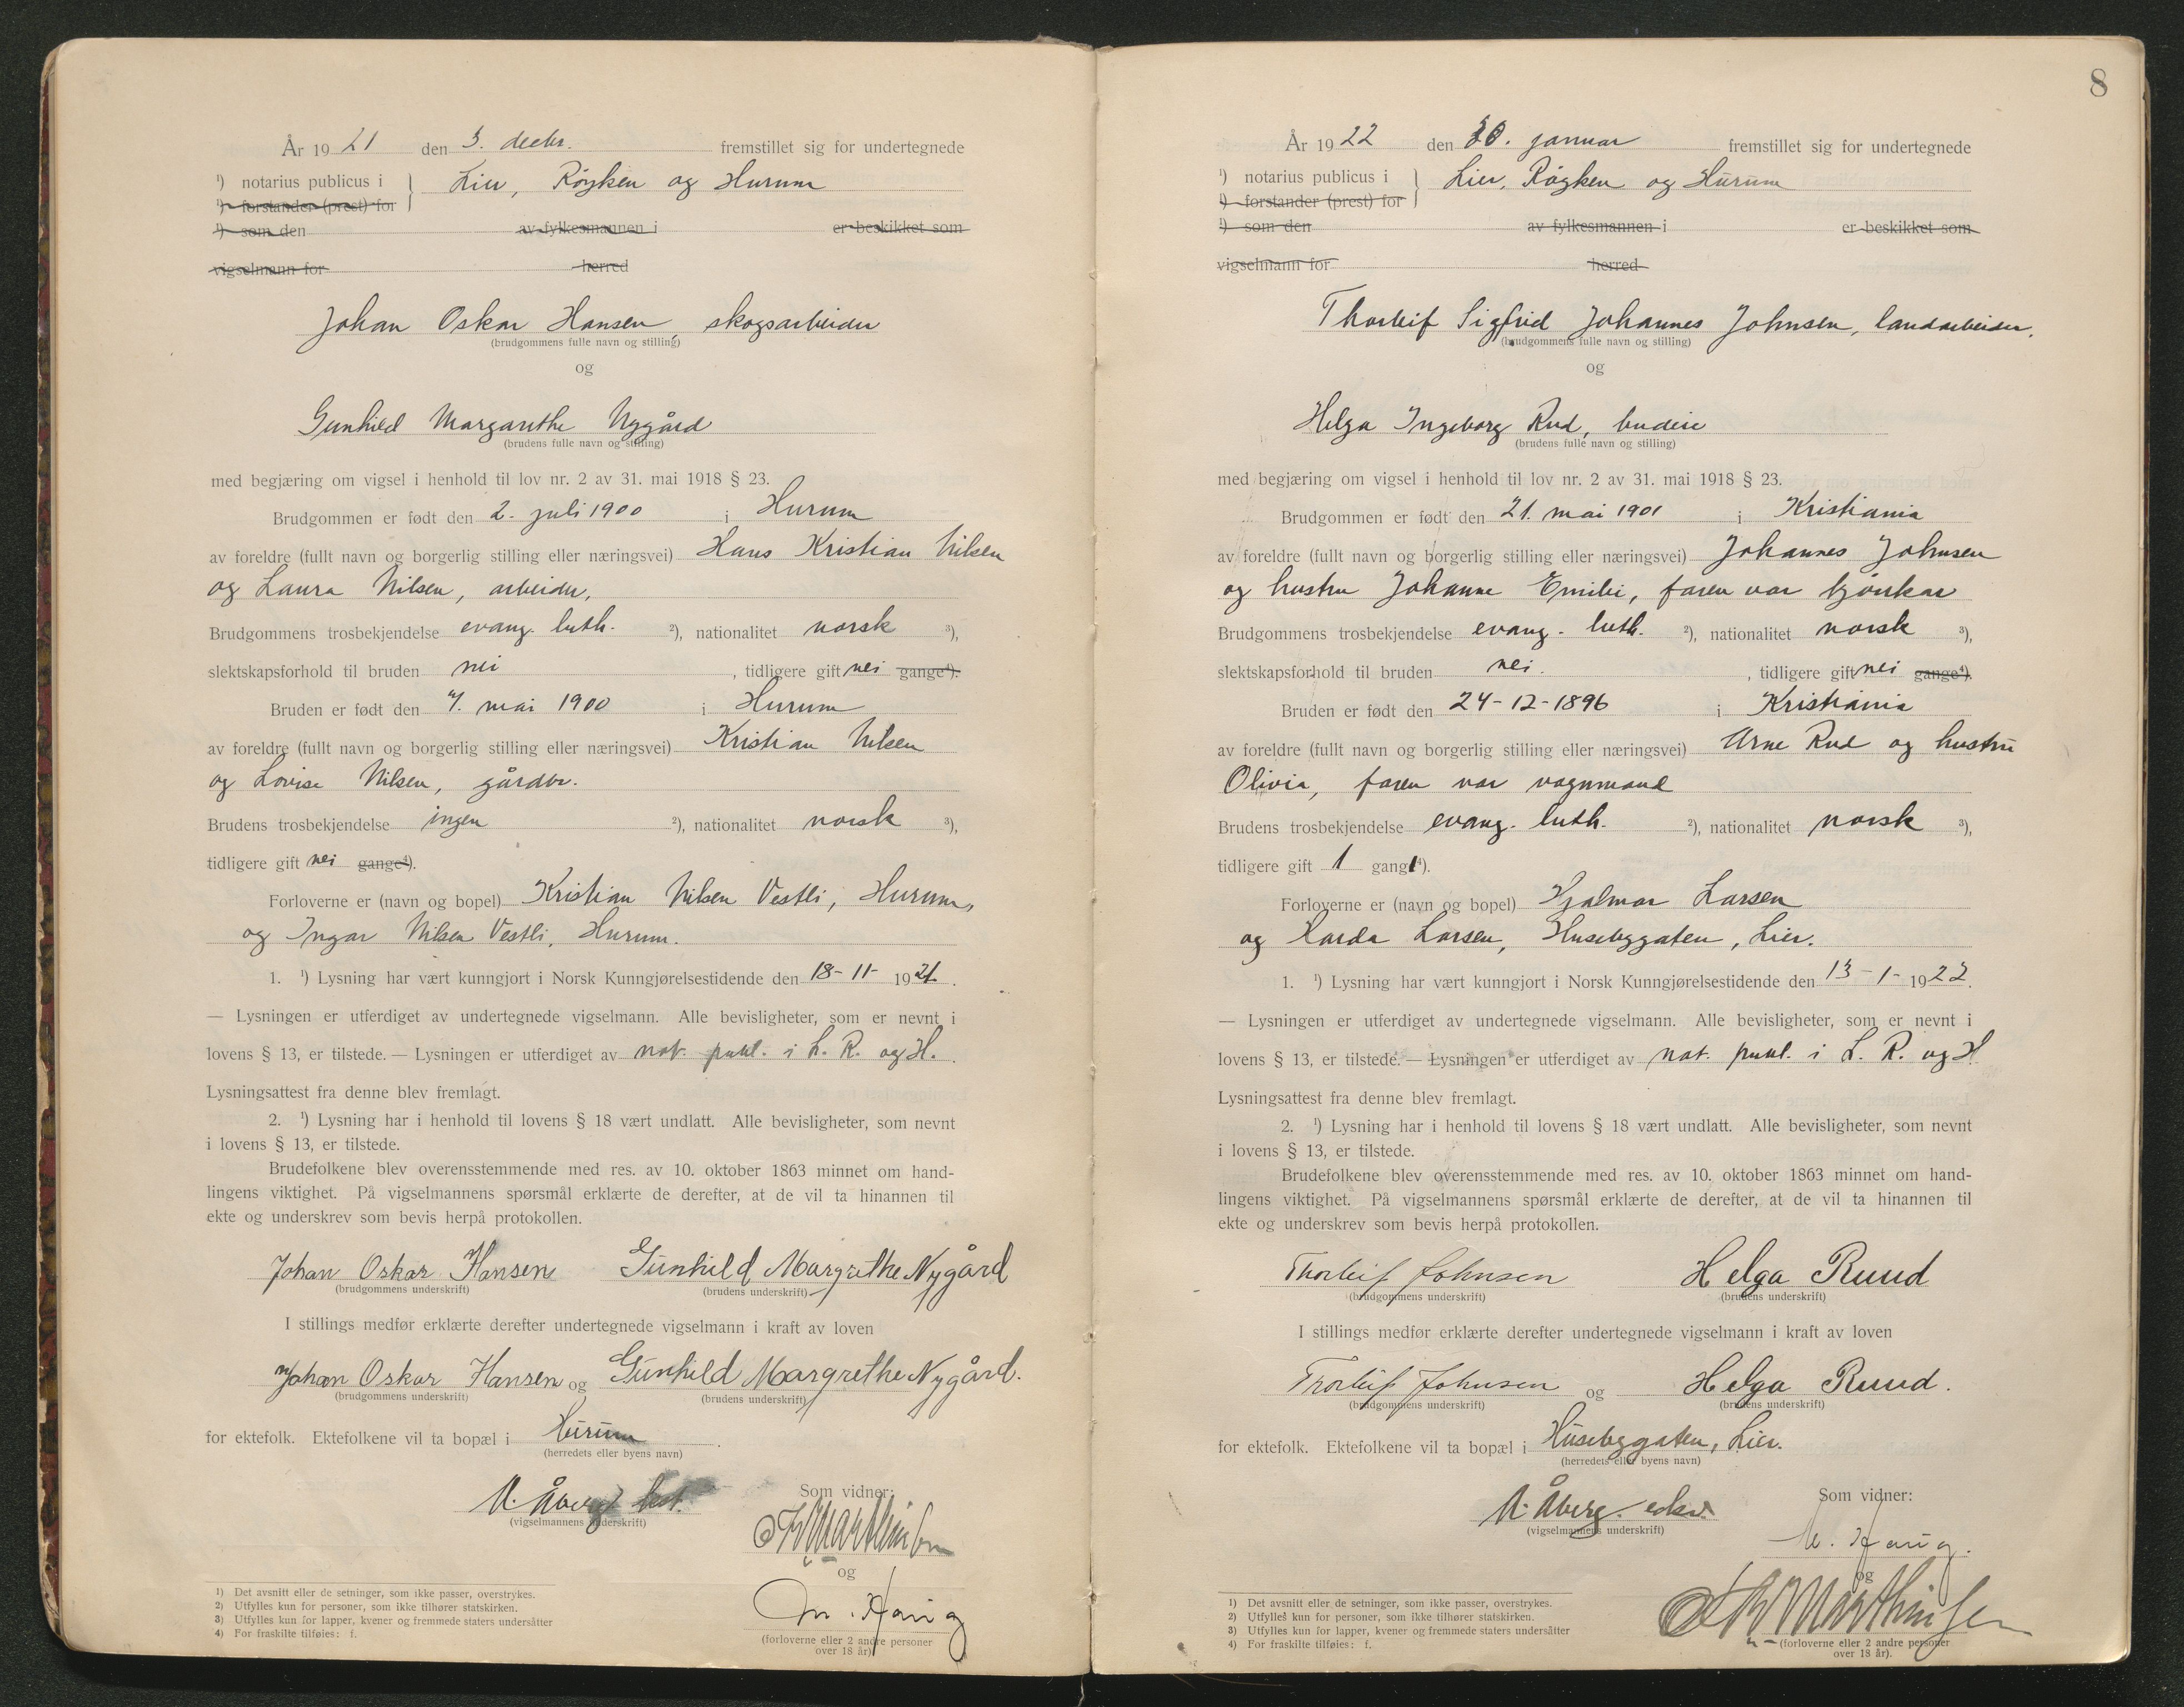 År 1921 den 3. decbr. fremstillet sig for undertegnede
¹) notarius publicus i } Lier, Røyken og Hurum
¹) forstander (prest) for
¹) som den av fylkesmannen i er beskikket som
vigselmann for herred
Johan Oskar Hansen, skogsarbeider
(brudgommens fulle navn og stilling)
og
Gunhild Margarethe Nygård
(brudens fulle navn og stilling)
med begjæring om vigsel i henhold til lov nr. 2 av 31. mai 1918 § 23.
Brudgommen er født den 2. juli 1900 i Hurum
av foreldre (fullt navn og borgerlig stilling eller næringsvei) Hans Kristian Nilsen
og Laura Nilsen, arbeider,
Brudgommens trosbekjendelse evang. luth. ²), nationalitet norsk ³),
slektskapsforhold til bruden nei , tidligere gift nei gange⁴).
Bruden er født den 4. mai 1900 i Hurum
av foreldre (fullt navn og borgerlig stilling eller næringsvei) Kristian Nilsen
og Lovise Nilsen, gårdbr.
Brudens trosbekjendelse ingen ²), nationalitet norsk ³),
tidligere gift nei gange⁴).
Forloverne er (navn og bopel) Kristian Nilsen Vestli, Hurum,
og Ingar Nilsen Vestli, Hurum.
1. ¹) Lysning har vært kunngjort i Norsk Kunngjørelsestidende den 18-11- 1921.
— Lysningen er utferdiget av undertegnede vigselmann. Alle bevisligheter, som er nevnt i
lovens § 13, er tilstede. — Lysningen er utferdiget av not. publ. i L. R. og H.
Lysningsattest fra denne blev fremlagt.
2. ¹) Lysning har i henhold til lovens § 18 vært undlatt. Alle bevisligheter, som nevnt
i lovens § 13, er tilstede.
Brudefolkene blev overensstemmende med res. av 10. oktober 1863 minnet om hand-
lingens viktighet. På vigselmannens spørsmål erklærte de derefter, at de vil ta hinannen til
ekte og underskrev som bevis herpå protokollen.
Johan Oskar Hansen Gunhild Margrethe Nygård
(brudgommens underskrift) (brudens underskrift)
I stillings medfør erklærte derefter undertegnede vigselmann i kraft av loven
Johan Oskar Hansen og Gunhild Margrethe Nygård.
(brudgommens underskrift) (brudens underskrift)
for ektefolk. Ektefolkene vil ta bopæl i Hurum.
(herredets eller byens navn)
N. Åberg
(vigselmannens underskrift)
Som vidner:
Marthinsen
og
M. Haug
(forloverne eller 2 andre personer
over 18 år)
1) Det avsnitt eller de setninger, som ikke passer, overstrykes.
2) Utfylles kun for personer, som ikke tilhører statskirken.
3) Utfylles kun for lapper, kvener og fremmede staters undersåtter
4) For fraskilte tilføies: f.
8
År 1922 den 30. januar fremstillet sig for undertegnede
¹) notarius publicus i } Lier, Røyken og Hurum
¹) forstander (prest) for
¹) som den av fylkesmannen i er beskikket som
vigselmann for herred
Thorleif Sigfrid Johannes Johnsen, landarbeider.
(brudgommens fulle navn og stilling)
og
Helga Ingeborg Rud, budeie
(brudens fulle navn og stilling)
med begjæring om vigsel i henhold til lov nr. 2 av 31. mai 1918 § 23.
Brudgommen er født den 21. mai 1901 i Kristiania
av foreldre (fullt navn og borgerlig stilling eller næringsvei) Johannes Johnsen
og hustru Johanne Emilie, faren var kjørekar
Brudgommens trosbekjendelse evang. luth. ²), nationalitet norsk ³),
slektskapsforhold til bruden nei. , tidligere gift nei gange⁴).
Bruden er født den 24-12-1896 i Kristiania
av foreldre (fullt navn og borgerlig stilling eller næringsvei) Arne Rud og hustru
Olivia, faren var vognmand
Brudens trosbekjendelse evang. luth. ²), nationalitet norsk ³),
tidligere gift 1 gang⁴).
Forloverne er (navn og bopel) Hjalmar Larsen
og Larsen, Husebygaten, Lier.
1. ¹) Lysning har vært kunngjort i Norsk Kunngjørelsestidende den 13-1- 1922.
— Lysningen er utferdiget av undertegnede vigselmann. Alle bevisligheter, som er nevnt i
lovens § 13, er tilstede. — Lysningen er utferdiget av not. publ. i L. R. og H
Lysningsattest fra denne blev fremlagt.
2. ¹) Lysning har i henhold til lovens § 18 vært undlatt. Alle bevisligheter, som nevnt
i lovens § 13, er tilstede.
Brudefolkene blev overensstemmende med res. av 10. oktober 1863 minnet om hand-
lingens viktighet. På vigselmannens spørsmål erklærte de derefter, at de vil ta hinannen til
ekte og underskrev som bevis herpå protokollen.
Thorleif Johnsen Helga Ruud
(brudgommens underskrift) (brudens underskrift)
I stillings medfør erklærte derefter undertegnede vigselmann i kraft av loven
Thorleif Johnsen og Helga Ruud.
(brudgommens underskrift) (brudens underskrift)
for ektefolk. Ektefolkene vil ta bopæl i Husebygaten, Lier.
(herredets eller byens navn)
N. Åberg
(vigselmannens underskrift)
Som vidner:
M. Haug.
og
Marthinsen
(forloverne eller 2 andre personer
over 18 år).
1) Det avsnitt eller de setninger, som ikke passer, overstrykes.
2) Utfylles kun for personer, som ikke tilhører statskirken.
3) Utfylles kun for lapper, kvener og fremmede staters undersåtter
4) For fraskilte tilføies: f.